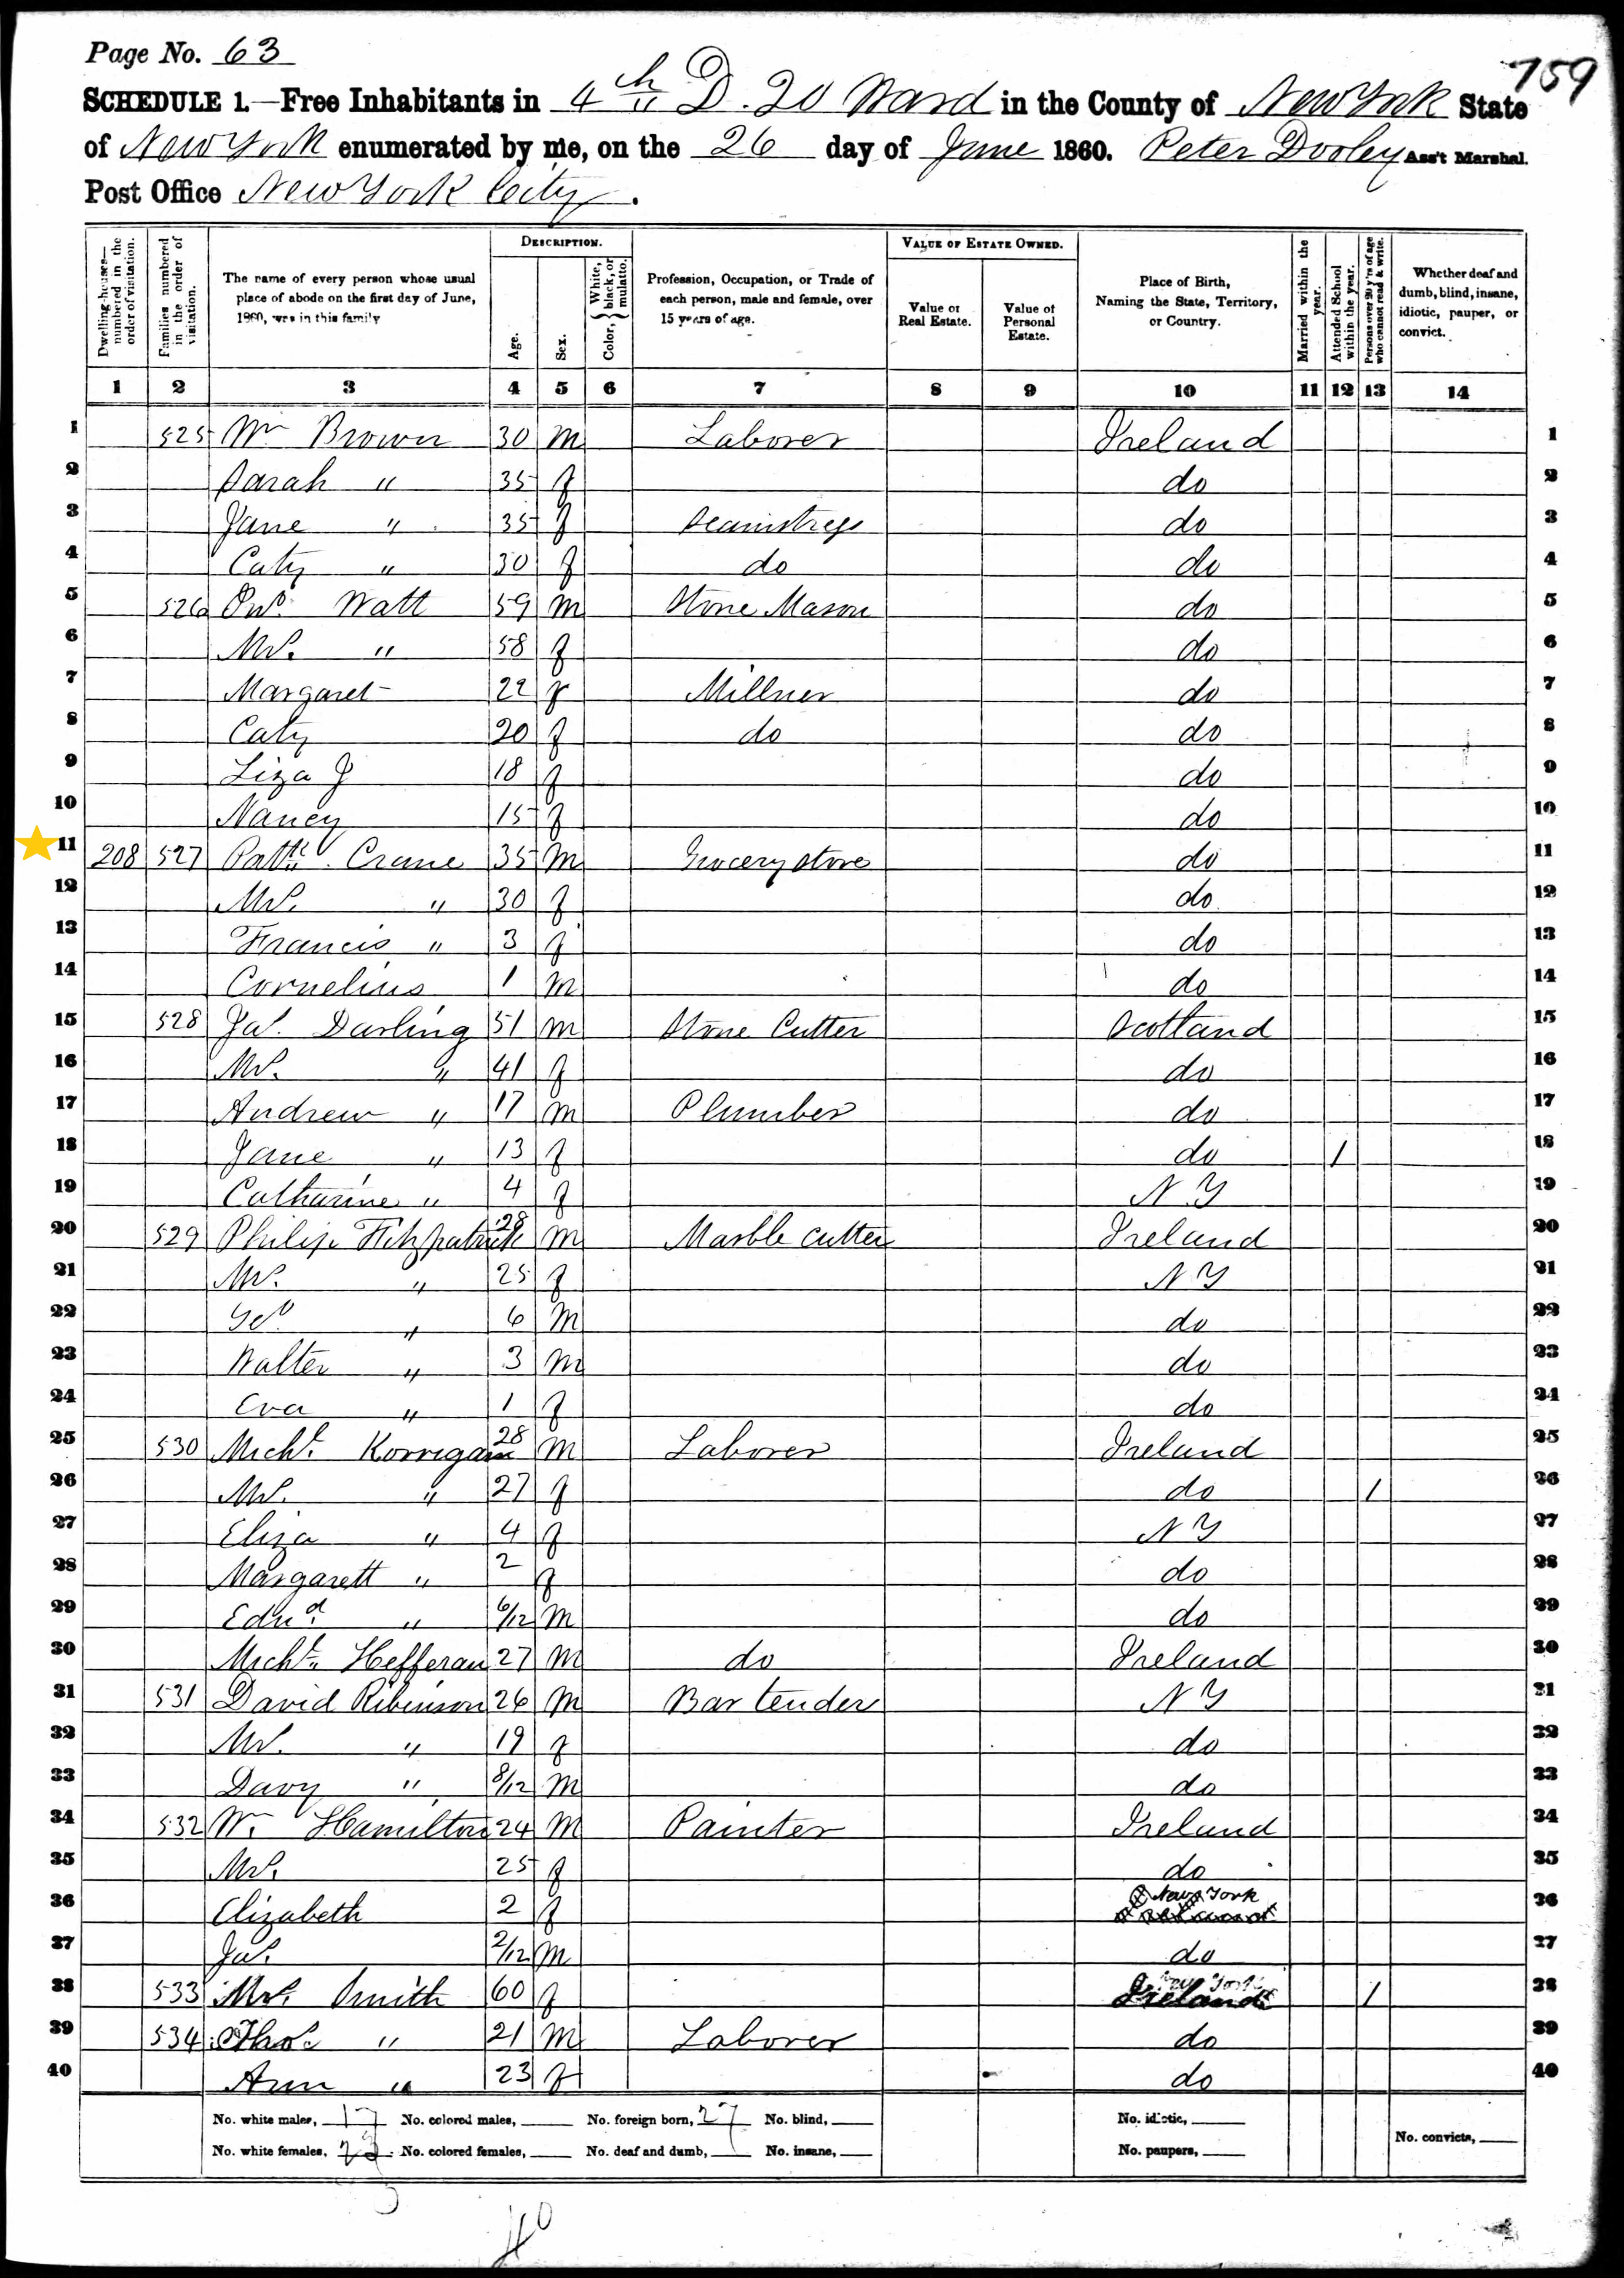 Page No. 63
759
SCHEDULE 1.—Free Inhabitants in 4th D. 20 Ward in the County of New York State
of New York enumerated by me, on the 26 day of June 1860. Peter Dooley Ass't Marshal.
Post Office New York City.
Dwelling-houses—numbered in the order of visitation.
Families numbered in the order of visitation.
The name of every person whose usual place of abode on the first day of June, 1860, was in this family
DESCRIPTION.
Age.
Sex.
Color, { White, black, or mulatto.
Profession, Occupation, or Trade of each person, male and female, over 15 years of age.
VALUE OF ESTATE OWNED.
Value of Real Estate.
Value of Personal Estate.
Place of Birth, Naming the State, Territory, or Country.
Married within the year.
Attended School within the year.
Persons over 20 y'rs of age who cannot read & write.
Whether deaf and dumb, blind, insane, idiotic, pauper, or convict.
1 2 3 4 5 6 7 8 9 10 11 12 13 14
1 525 Wm Brown 30 m Laborer Ireland 1
2 Sarah " 35 f do 2
3 Jane " 35 f Seamstress do 3
4 Caty " 30 f do do 4
5 526 Watt 59 m Stone Mason do 5
6 Mrs. " 58 f do 6
7 Margaret 22 f Millner do 7
8 Caty 20 f do do 8
9 Liza J 18 f do 9
10 Nancy 15 f do 10
11 208 527 Patk. Crane 35 m Grocery store do 11
12 Mrs. " 30 f do 12
13 Francis " 3 f do 13
14 Cornelius 1 m do 14
15 528 Jas. Darling 51 m Stone Cutter Scotland 15
16 Mrs. " 41 f do 16
17 Andrew " 17 m Plumber do 17
18 Jane " 13 f do / 18
19 Catharine " 4 f N.Y 19
20 529 Philip Fitzpatrick 28 m Marble cutter Ireland 20
21 Mrs. " 25 f N Y 21
22 Geo. " 6 m do 22
23 Walter " 3 m do 23
24 Eva " 1 f do 24
25 530 Michl. Korrigan 28 m Laborer Ireland 25
26 Mrs. " 27 f do / 26
27 Eliza " 4 f N Y 27
28 Margarett " 2 f do 28
29 Edwd. " 6/12 m do 29
30 Michl. Hefferan 27 m do Ireland 30
31 531 David Ribinson 26 m Bar tender N Y 31
32 Mrs. " 19 f do 32
33 Davy " 8/12 m do 33
34 532 Wm. Hamilton 24 m Painter Ireland 34
35 Mrs. 25 f do 35
36 Elizabeth 2 f New York 36
37 Jas. 2/12 m do 37
38 533 Mrs. Smith 60 f Ireland / 38
39 534 Thos. " 21 m Laborer do 39
40 Ann " 23 f do 40
No. white males, 17 No. colored males, No. foreign born, 27 No. blind, No. idiotic,
No. white females, 23 No. colored females, No. deaf and dumb, No. insane, No. paupers, No. convicts,
40